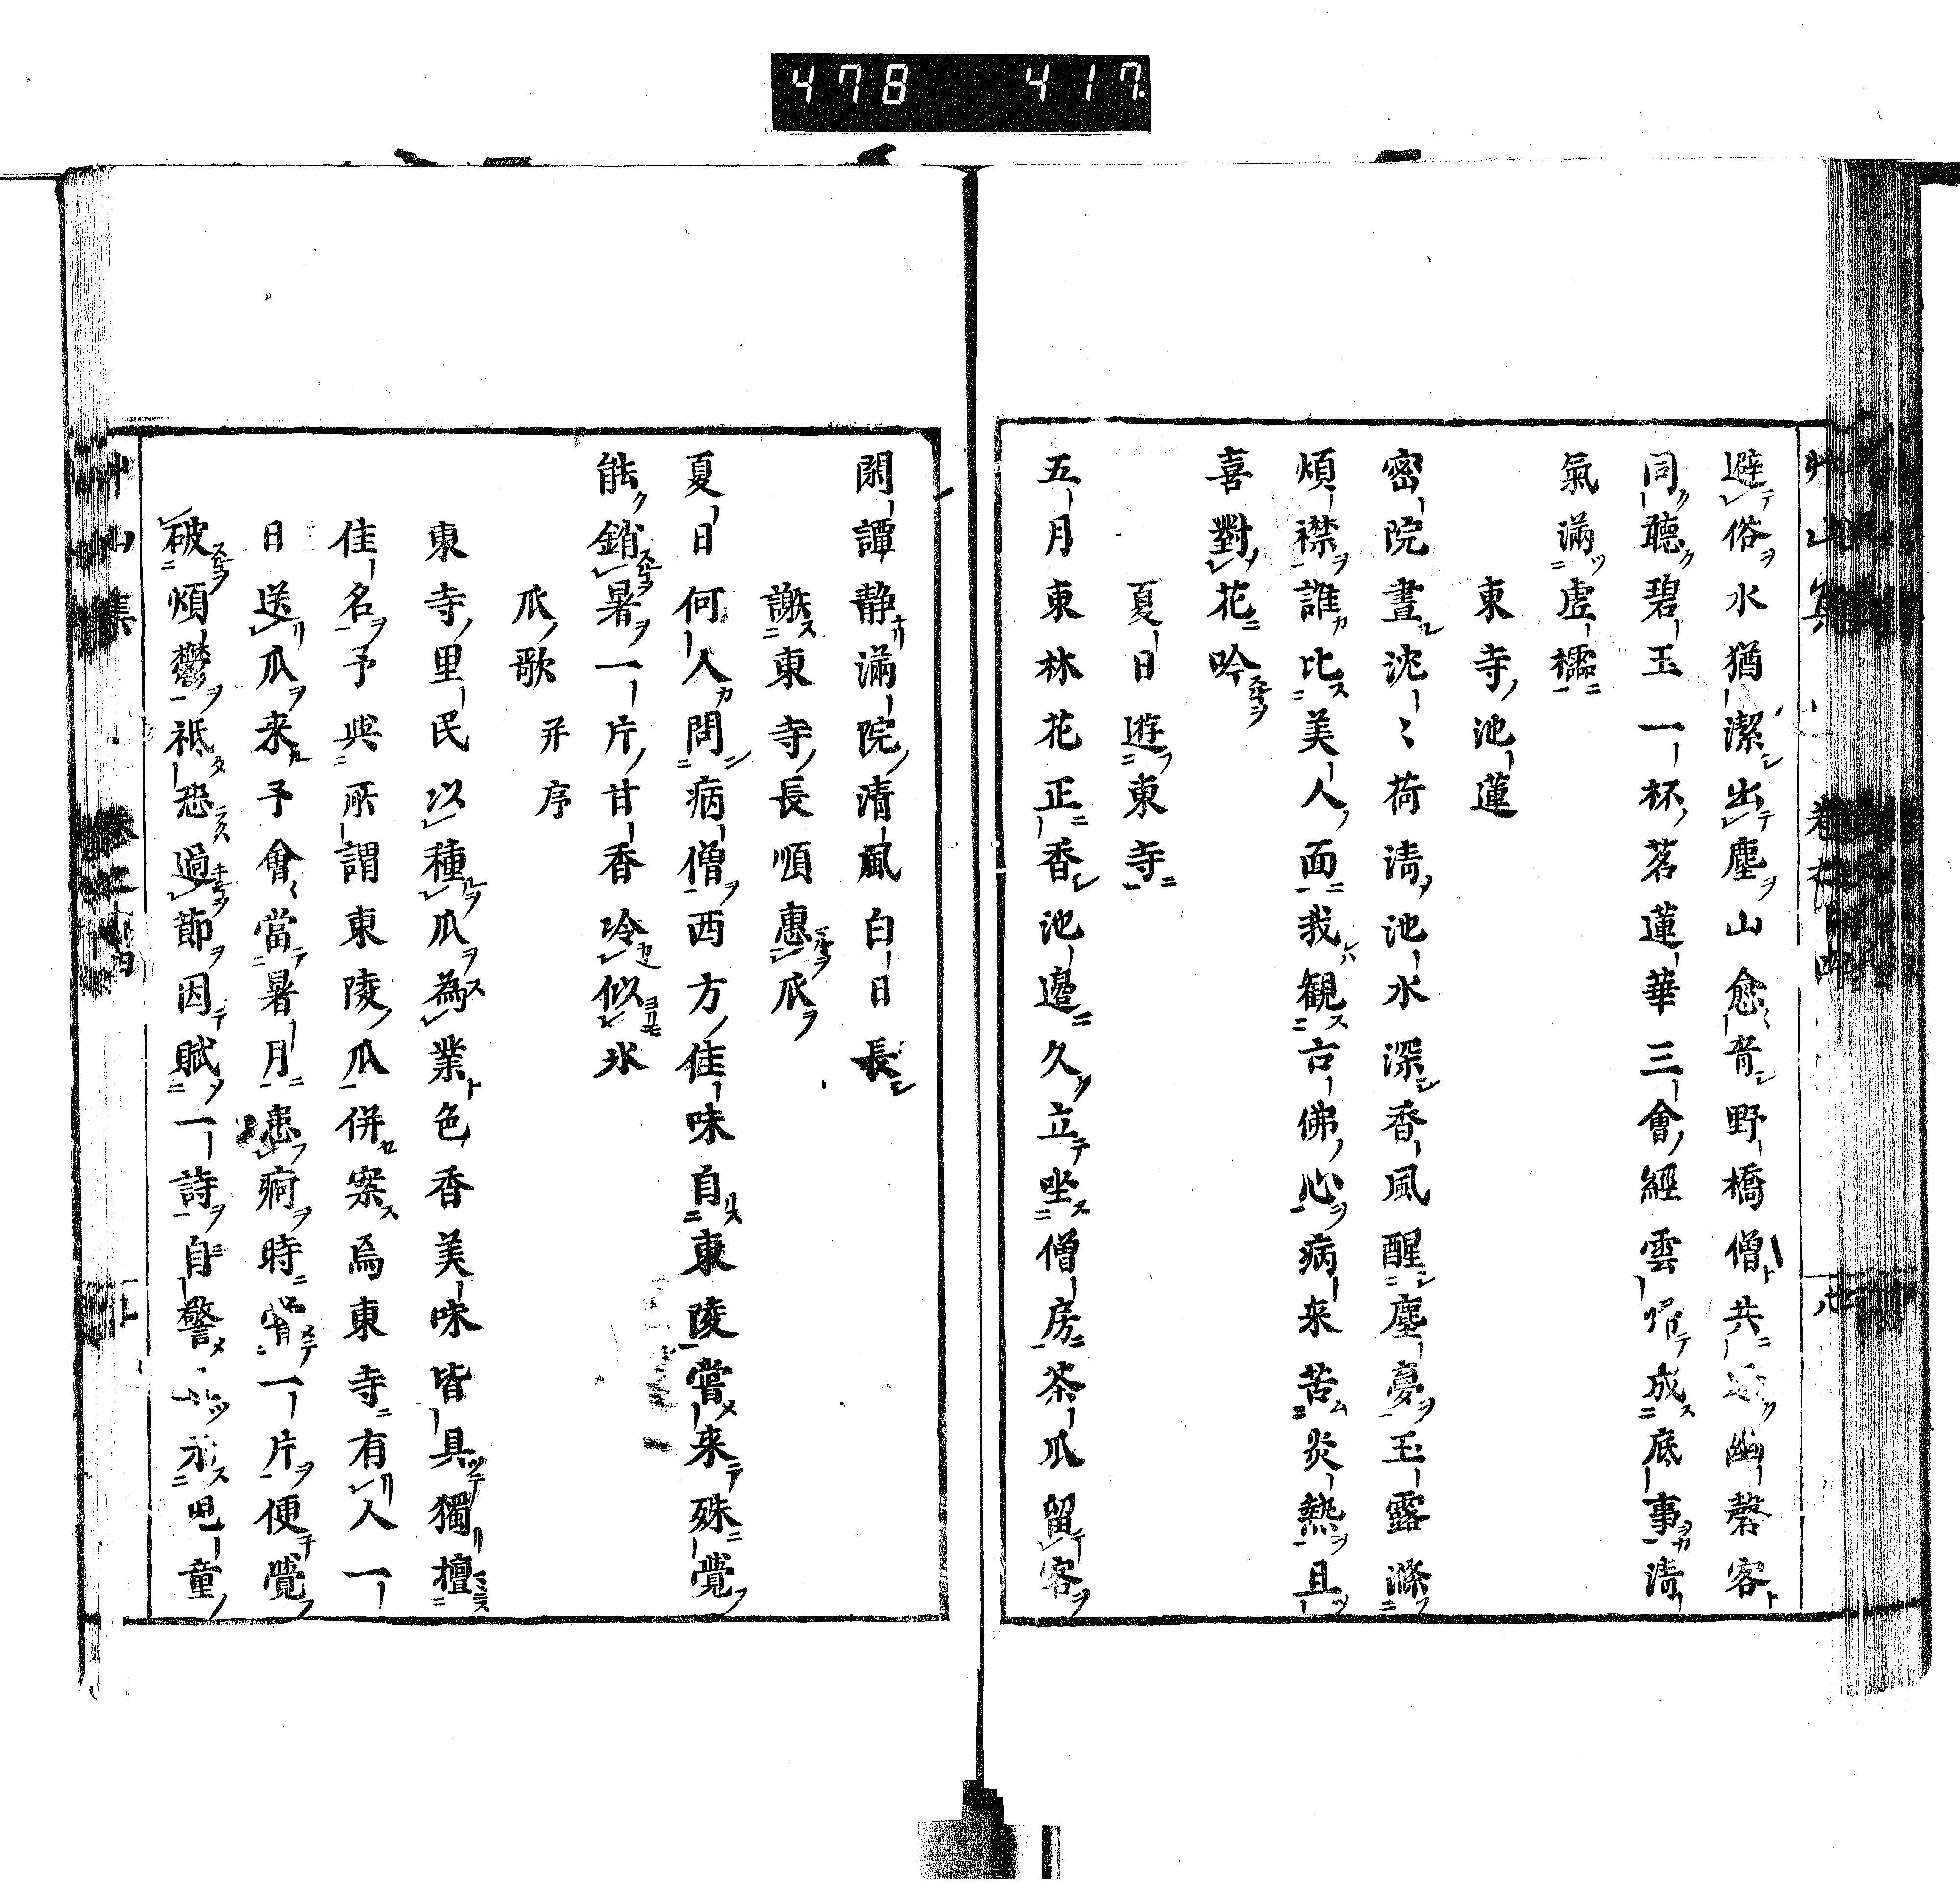 478 417.
避俗水猶潔出塵山愈音野橋僧共 幽磬客
同聽碧玉一杯茗蓮華三會經雲 成底事清
氣滿虛櫺
東寺池蓮
密院晝沈〻荷清池水深香風醒塵夢玉露滌
煩襟誰比美人面我観古佛心病来苦炎熱且
喜對花吟
夏日遊東寺
五月東林花正香池邊久立坐僧房茶瓜留客
閑譚静滿院清風白日長
謝東寺長順惠瓜
夏日何人問病僧西方佳味自東陵嘗来殊覺
能銷暑一片甘香冷似氷
瓜歌并序
東寺里民以種瓜為業色香美味皆具獨擅
佳名予與所謂東陵瓜併案焉東寺有人一
日送瓜来予會當暑月患痾時嘗一片便覺
破煩鬱祇恐過節因賦一詩自警 示児童
艸山集 卷二十四